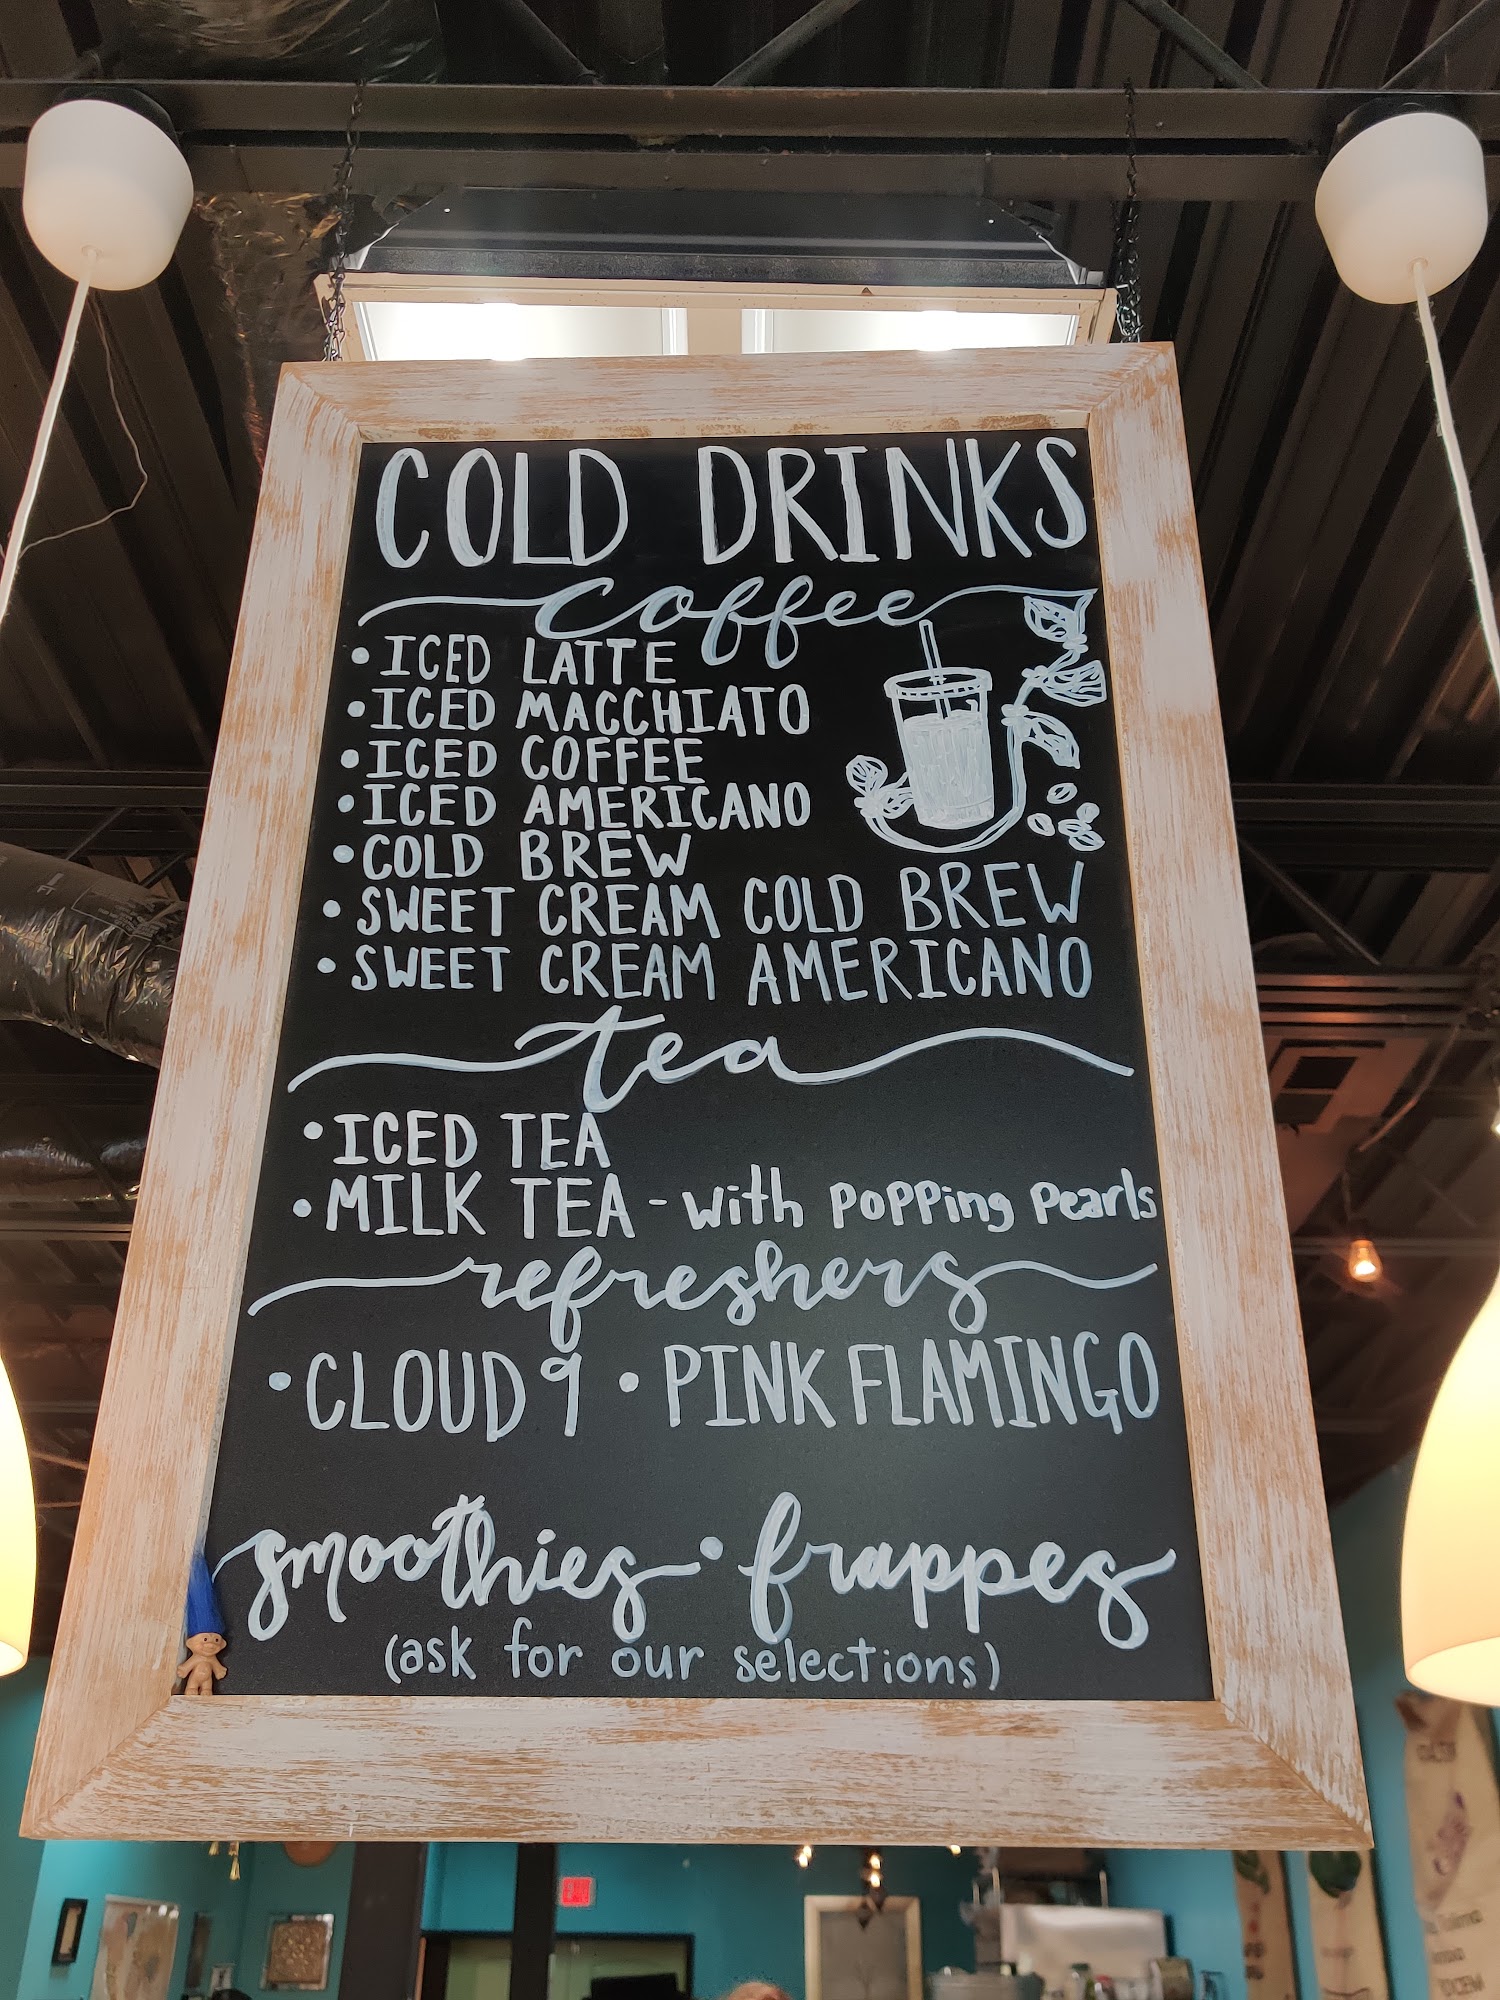 COLD DRINKS
coffee
• ICED LATTE
• ICED MACCHIATO
• ICED COFFEE
• ICED AMERICANO
• COLD BREW
• SWEET CREAM COLD BREW
• SWEET CREAM AMERICANO
tea
• ICED TEA
• MILK TEA - with popping pearls
refreshers
• CLOUD 9 • PINK FLAMINGO
smoothies • frappes
(ask for our selections)